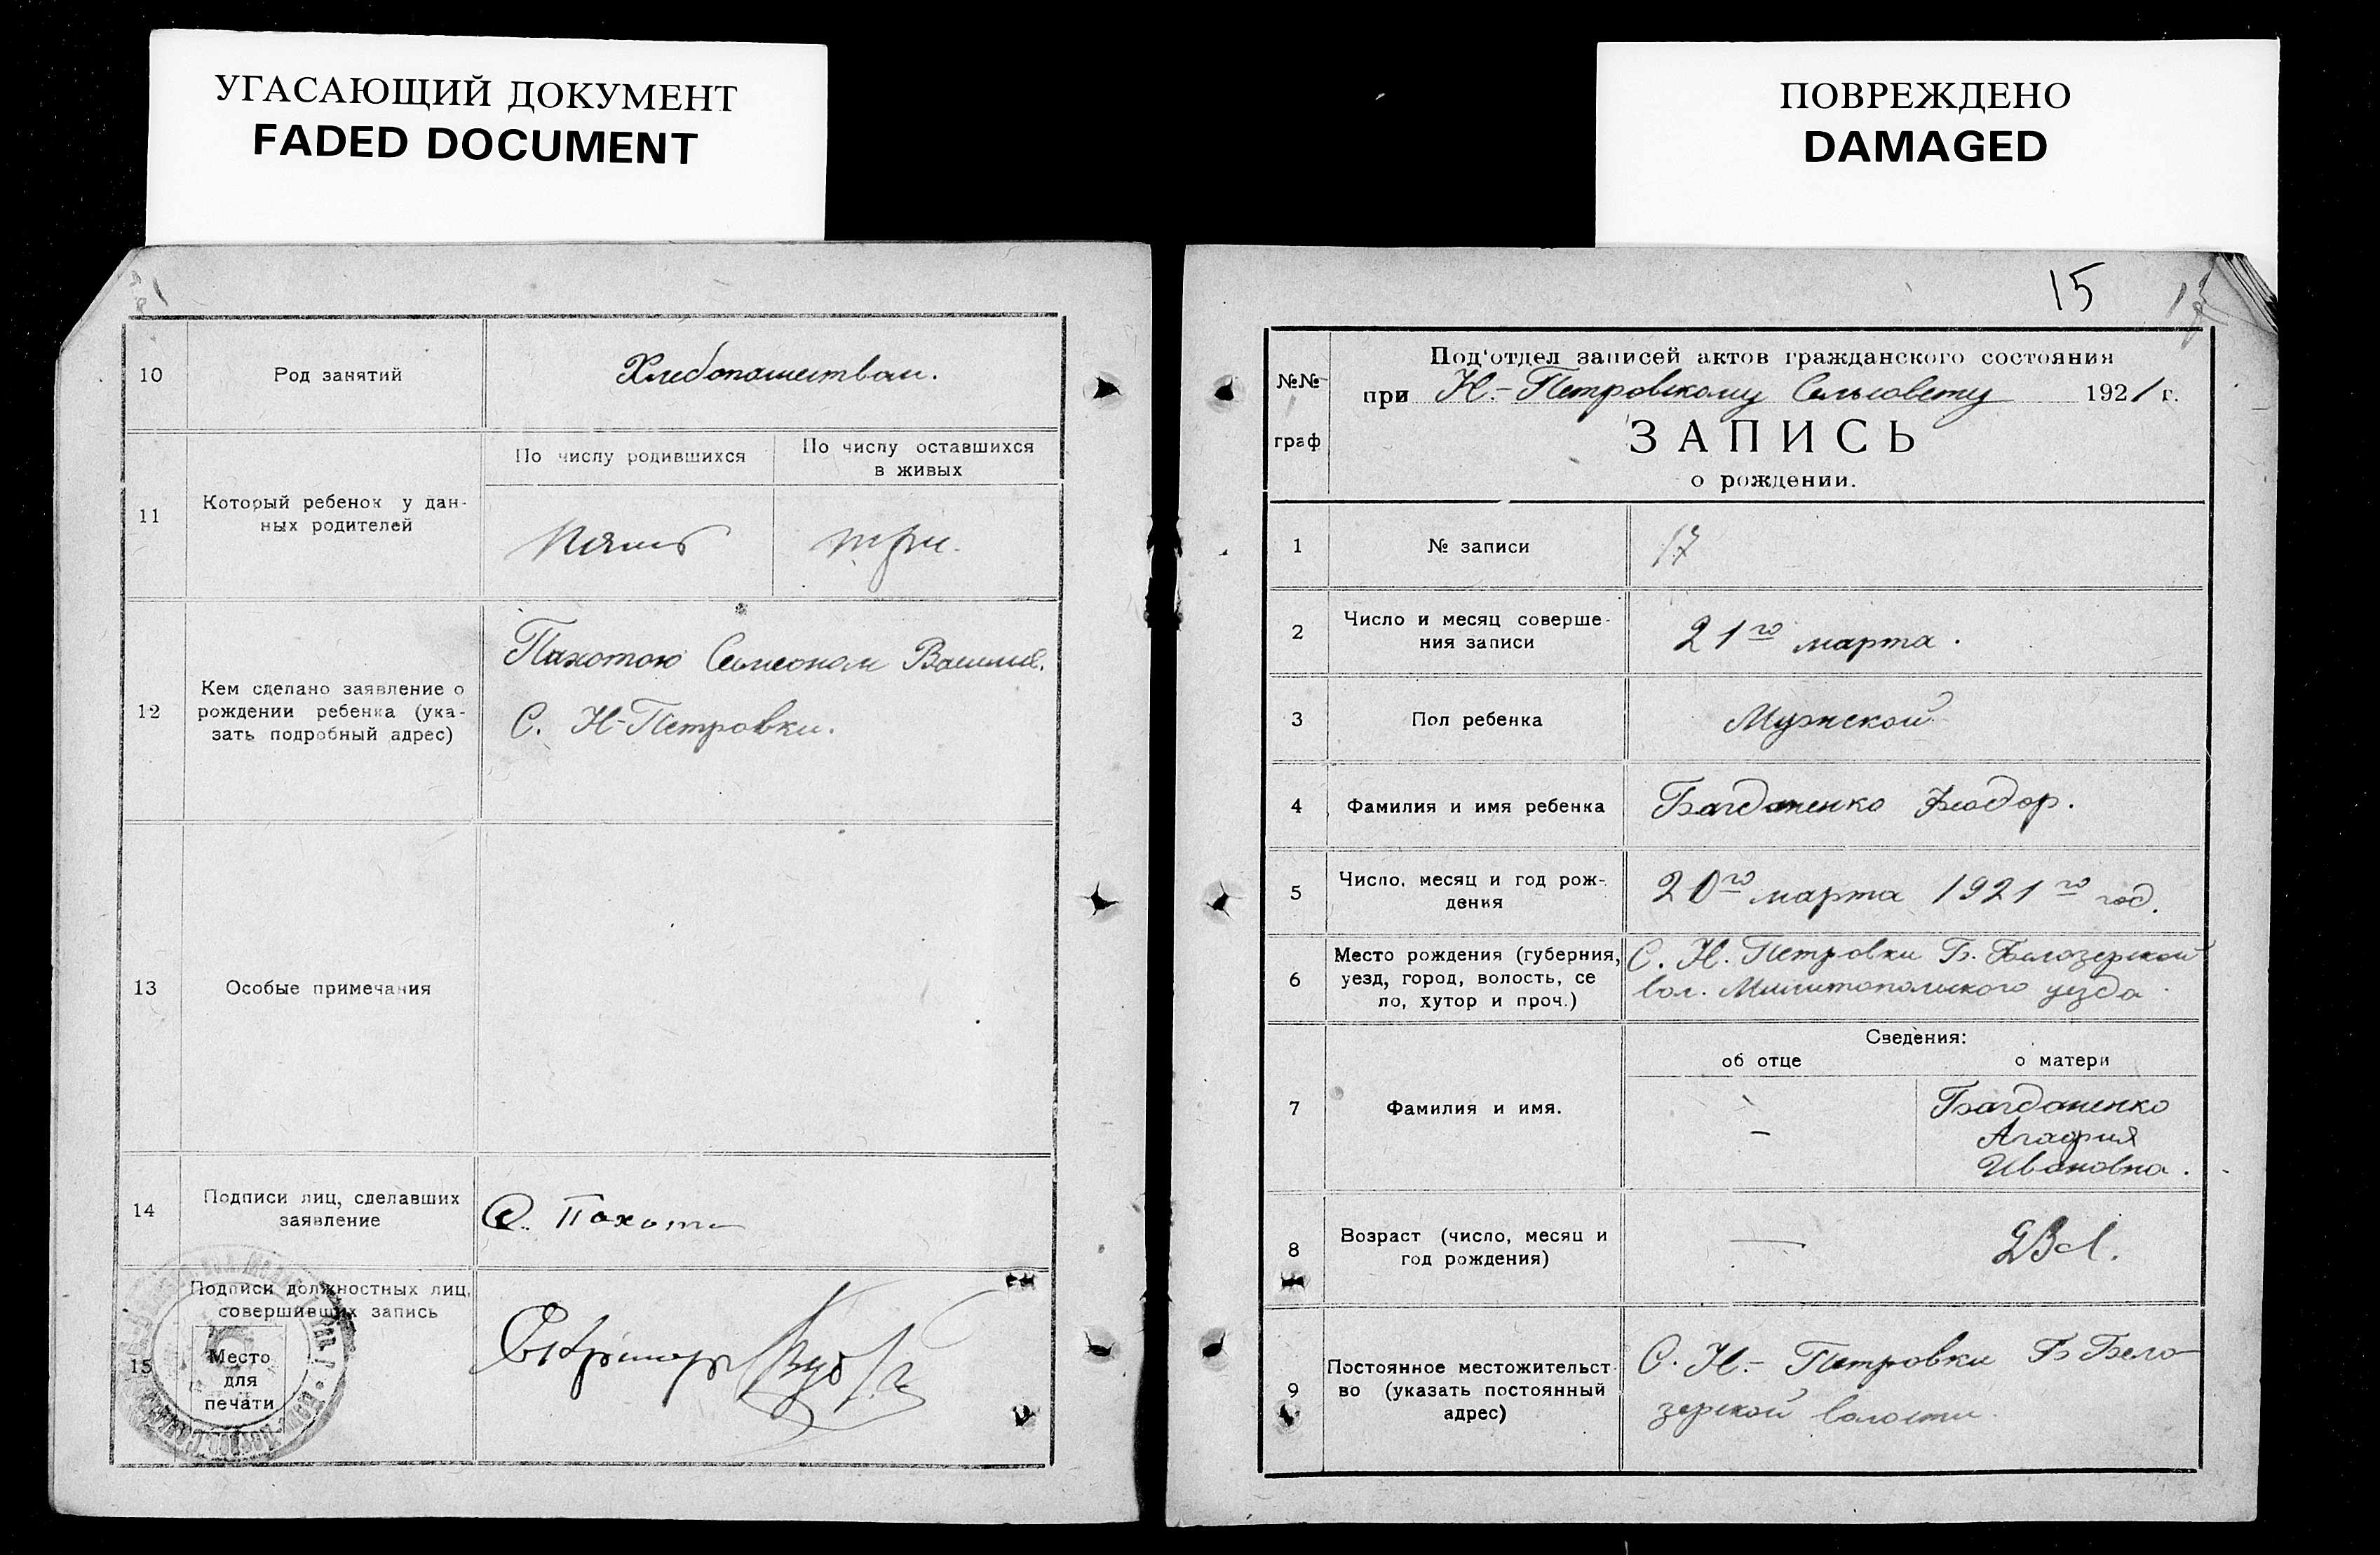 УГАСАЮЩИЙ ДОКУМЕНТ
FADED DOCUMENT
10
Род занятий
Хлебопашеством.
11
Который ребенок у дан-
ных родителей
По числу родившихся
По числу оставшихся
в живых
Пять
три.
12
Кем сделано заявление о
рождении ребенка (ука-
зать подробный адрес)
Пахотою Семеоном Васил.
С. Н-Петровки.
13
Особые примечания
14
Подписи лиц, сделавших
заявление
С. Пахота
15
Подписи должностных лиц,
совершивших запись
Место
для
печати
Секретарь
ПОВРЕЖДЕНО
DAMAGED
15
№№
граф
Под'отдел записей актов гражданского состояния
при Н.-Петровскому Сельсовету 1921 г.
ЗАПИСЬ
о рождении.
1
№ записи
17
2
Число и месяц соверше-
ния записи
21го марта.
3
Пол ребенка
Мужской
4
Фамилия и имя ребенка
Багданенко Феодор.
5
Число, месяц и год рож-
дения
20го марта 1921го год.
6
Место рождения (губерния,
уезд, город, волость, се
ло, хутор и проч.)
С. Н. Петровки Б. Белозерской
вол. Милитопольского уезда
Сведения:
об отце
о матери
7
Фамилия и имя.
—
Багданенко
Агафия
Ивановна.
8
Возраст (число, месяц и
год рождения)
—
9
Постоянное местожительст
во (указать постоянный
адрес)
С. Н.- Петровки Б Бело
зерской волости